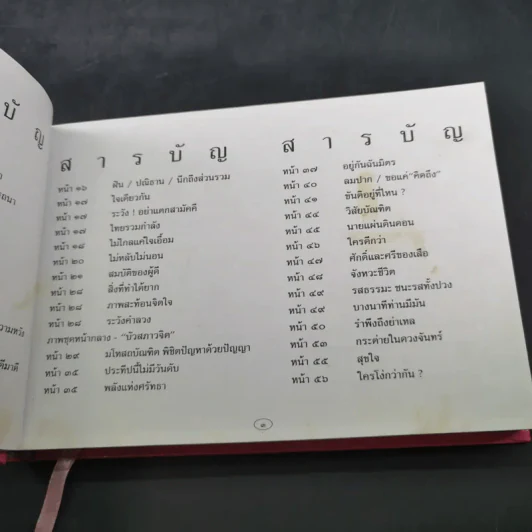 บัญ
สารบัญ
หน้า ๑๖ ฝืน / ปณิธาน / นึกถึงส่วนรวม
หน้า ๑๗ ใจเดียวกัน
หน้า ๑๗ ระวัง ! อย่าแตกสามัคคี
หน้า ๑๗ ไทยรวมกำลัง
หน้า ๑๘ ไม่ไกลแค่ใจเอื้อม
หน้า ๒๐ ไม่หลับไม่นอน
หน้า ๒๑ สมบัติของผู้ดี
หน้า ๒๘ สิ่งที่ทำได้ยาก
หน้า ๒๘ ภาพสะท้อนจิตใจ
หน้า ๒๘ ระวังคำลวง
ภาพชุดหน้ากลาง - “บัวสภาวจิต”
หน้า ๒๙ มโหสถบัณฑิต พิชิตปัญหาด้วยปัญญา
หน้า ๓๕ ประทีปนี้ไม่มีวันดับ
หน้า ๓๕ พลังแห่งศรัทธา
สารบัญ
หน้า ๓๗ อยู่กันฉันมิตร
หน้า ๔๐ ลมปาก / ขอแค่ “คิดถึง”
หน้า ๔๑ ขันติอยู่ที่ไหน ?
หน้า ๔๔ วิสัยบัณฑิต
หน้า ๔๕ นายแผ่นดินดอน
หน้า ๔๖ ใครดีกว่า
หน้า ๔๗ ศักดิ์และศรีของเสือ
หน้า ๔๘ จังหวะชีวิต
หน้า ๔๙ รสธรรมะ ชนะรสทั้งปวง
หน้า ๔๙ บางนาทีท่านมีมัน
หน้า ๕๐ รำพึงถึงย่าเหล
หน้า ๕๓ กระต่ายในดวงจันทร์
หน้า ๕๕ สุขใจ
หน้า ๕๖ ใครโง่กว่ากัน ?